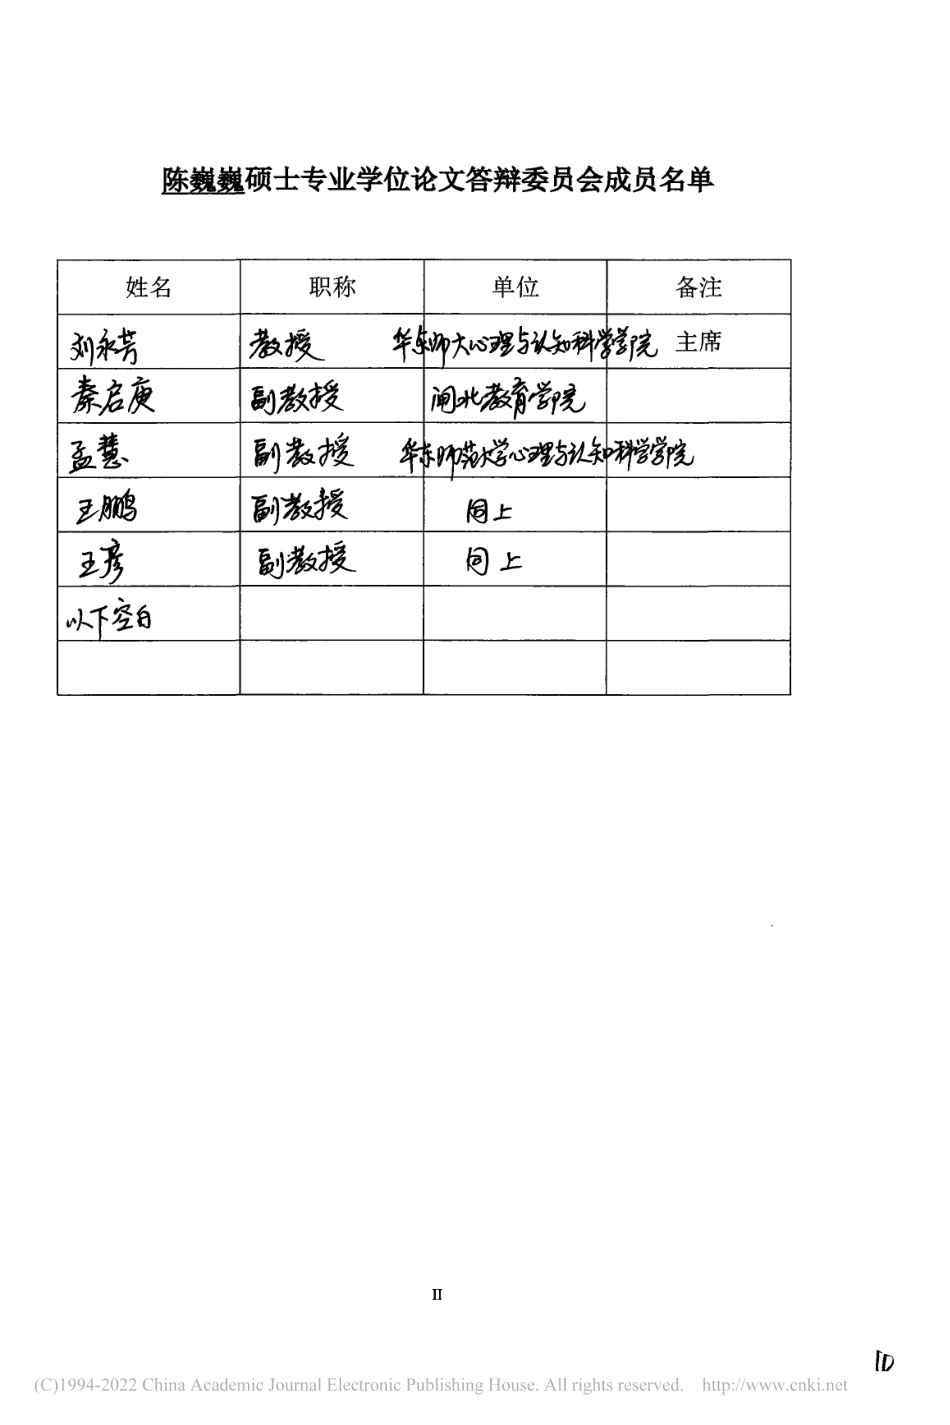 陈巍巍硕士专业学位论文答辩委员会成员名单
姓名 职称 单位 备注
刘永芳 教授 华东师大心理与认知科学学院 主席
秦启庚 副教授 闸北教育学院
孟慧 副教授 华东师范大学心理与认知科学学院
王鹏 副教授 同上
王彦 副教授 同上
以下空白
II
10
(C)1994-2022 China Academic Journal Electronic Publishing House. All rights reserved. http://www.cnki.net